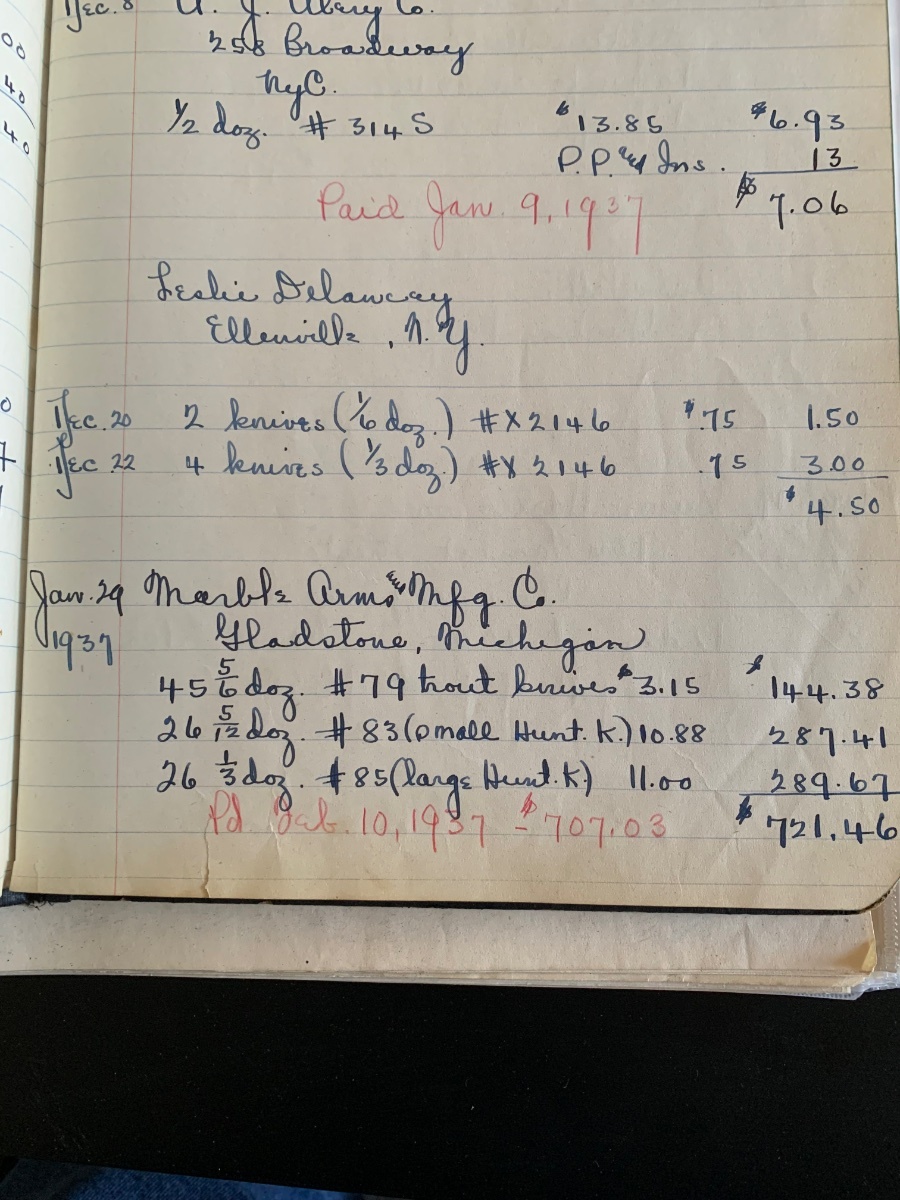 00
40
40
0
7
Dec. 8 Co.
258 Broadway
NyC.
1/2 doz. # 314 S $13.85 $6.93
P.P. & Ins. 13
$7.06
Paid Jan. 9, 1937
Leslie Delancay
Ellenville, N.Y.
Dec. 20 2 knives (1/6 doz.) #X2146 $.75 1.50
Dec 22 4 knives (1/3 doz.) #X 2146 .75 3.00
$4.50
Jan. 29 Marble Arms & Mfg. Co.
1937 Gladstone, Michigan
45 5/6 doz. #79 trout knives $3.15 $144.38
26 5/12 doz. # 83 (small Hunt. K.) 10.88 287.41
26 1/3 doz. # 85 (large Hunt. K) 11.00 289.67
Pd. Feb. 10, 1937 - $707.03 $721.46